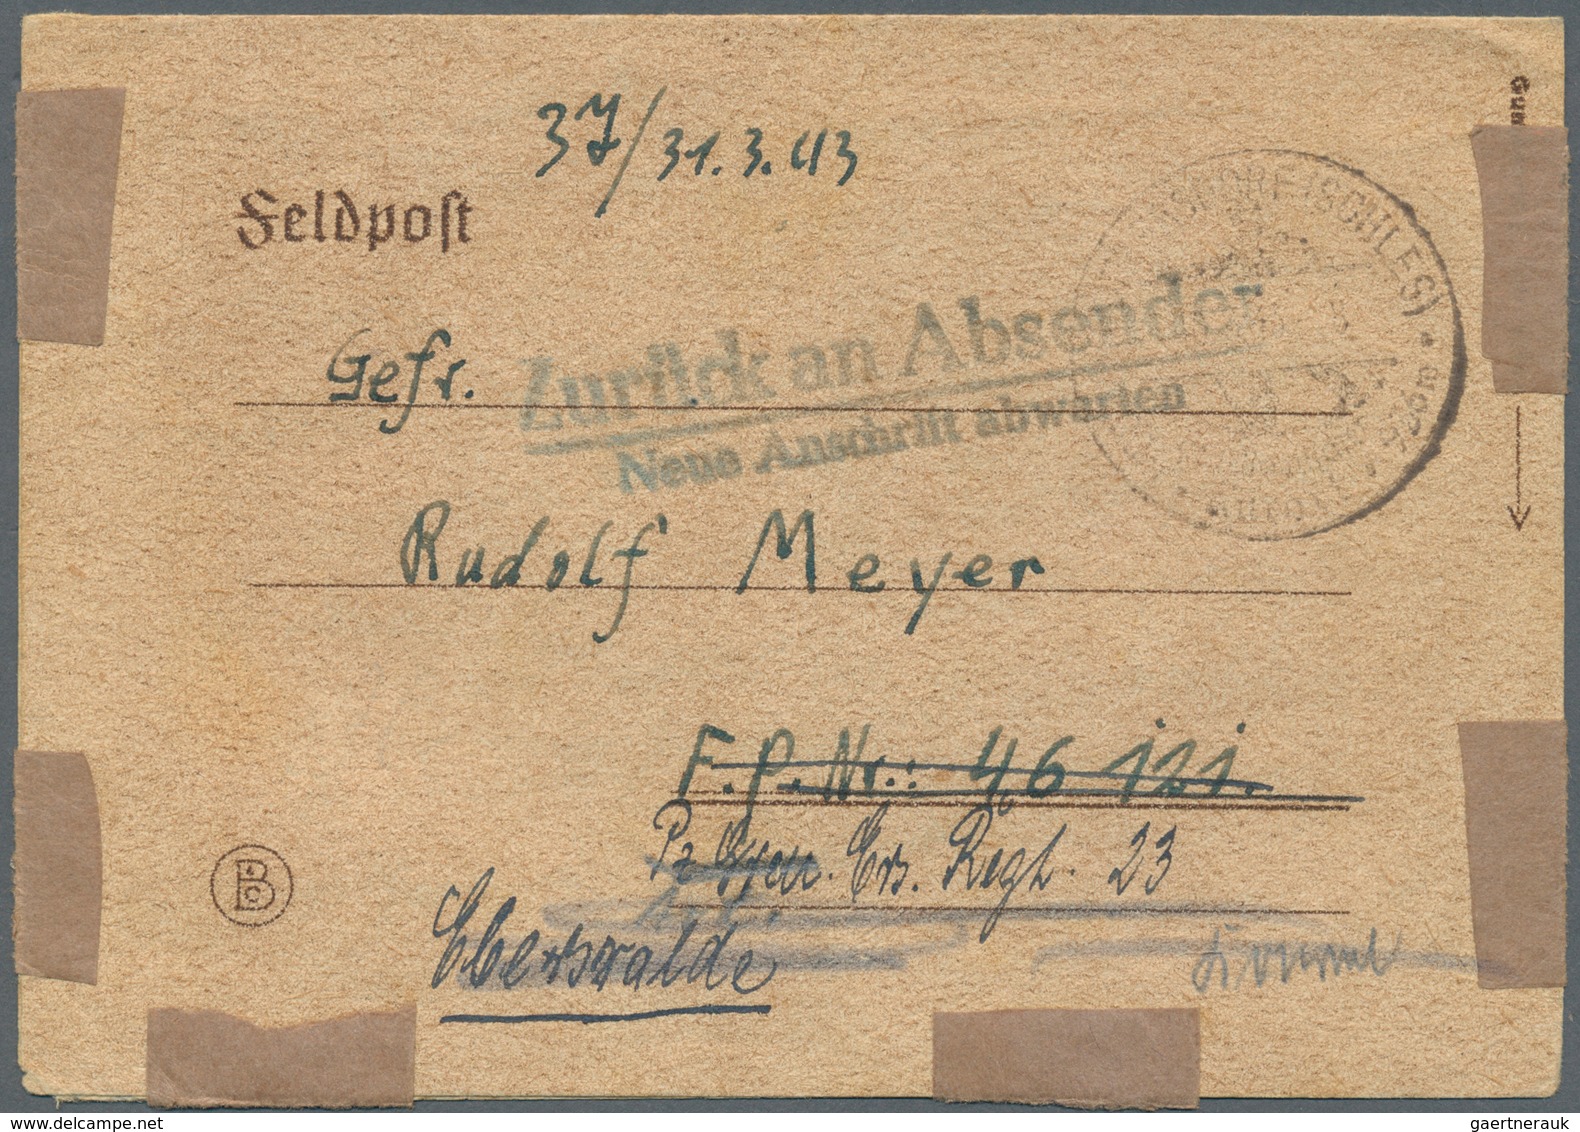 37/31.3.43
Feldpost
Zurück an Absender
Neue Anschrift abwarten
Gefr.
Rudolf Meyer
F.P. Nr.: 46 121.
Pz Gren. Ers. Regt. 23
Eberswalde
(SCHLES)
delcampe.net
gaertnerauk